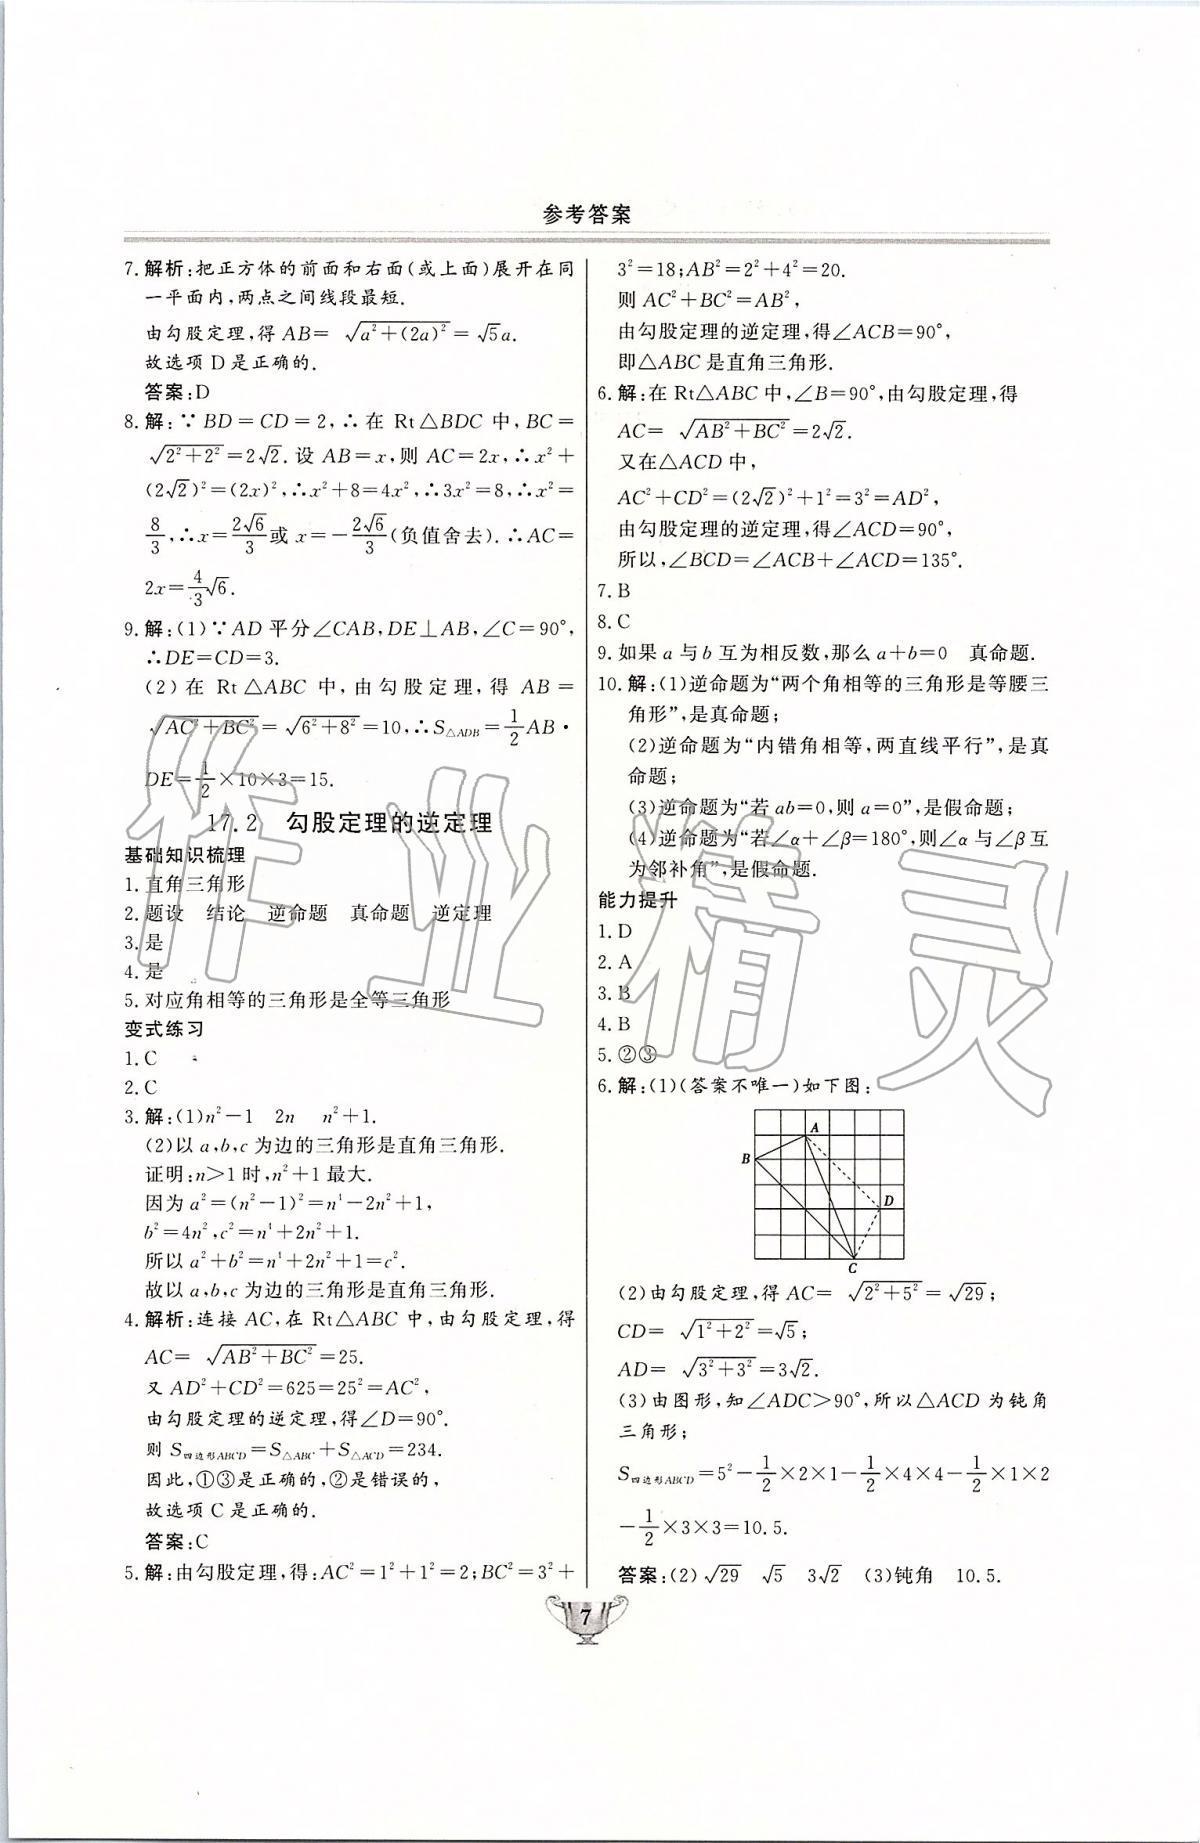 参考答案
7.解析:把正方体的前面和右面(或上面)展开在同
一平面内,两点之间线段最短.
由勾股定理,得 AB= √(a²+(2a)²)=√5a.
故选项 D 是正确的.
答案:D
8.解:∵BD=CD=2,∴在 Rt△BDC 中,BC=
√(2²+2²)=2√2.设 AB=x,则 AC=2x,∴x²+
(2√2)²=(2x)²,∴x²+8=4x²,∴3x²=8,∴x²=
8/3,∴x=2√6/3或 x=-2√6/3(负值舍去).∴AC=
2x=4/3√6.
9.解:(1)∵AD 平分∠CAB,DE⊥AB,∠C=90°,
∴DE=CD=3.
(2)在 Rt△ABC 中,由勾股定理,得 AB=
√(AC²+BC²)=√(6²+8²)=10,∴S△ADB=1/2AB·
DE=1/2×10×3=15.
17.2 勾股定理的逆定理
基础知识梳理
1.直角三角形
2.题设 结论 逆命题 真命题 逆定理
3.是
4.是
5.对应角相等的三角形是全等三角形
变式练习
1.C
2.C
3.解:(1)n²-1 2n n²+1.
(2)以 a,b,c 为边的三角形是直角三角形.
证明:n>1 时,n²+1 最大.
因为 a²=(n²-1)²=n⁴-2n²+1,
b²=4n²,c²=n⁴+2n²+1.
所以 a²+b²=n⁴+2n²+1=c².
故以 a,b,c 为边的三角形是直角三角形.
4.解析:连接 AC,在 Rt△ABC 中,由勾股定理,得
AC= √(AB²+BC²)=25.
又 AD²+CD²=625=25²=AC²,
由勾股定理的逆定理,得∠D=90°.
则 S四边形ABCD=S△ABC+S△ACD=234.
因此,①③是正确的,②是错误的,
故选项 C 是正确的.
答案:C
5.解:由勾股定理,得:AC²=1²+1²=2;BC²=3²+
3²=18;AB²=2²+4²=20.
则 AC²+BC²=AB²,
由勾股定理的逆定理,得∠ACB=90°,
即△ABC 是直角三角形.
6.解:在 Rt△ABC 中,∠B=90°,由勾股定理,得
AC= √(AB²+BC²)=2√2.
又在△ACD 中,
AC²+CD²=(2√2)²+1²=3²=AD²,
由勾股定理的逆定理,得∠ACD=90°,
所以,∠BCD=∠ACB+∠ACD=135°.
7.B
8.C
9.如果 a 与 b 互为相反数,那么 a+b=0 真命题.
10.解:(1)逆命题为“两个角相等的三角形是等腰三
角形”,是真命题;
(2)逆命题为“内错角相等,两直线平行”,是真
命题;
(3)逆命题为“若 ab=0,则 a=0”,是假命题;
(4)逆命题为“若∠α+∠β=180°,则∠α 与∠β 互
为邻补角”,是假命题.
能力提升
1.D
2.A
3.B
4.B
5.②③
6.解:(1)(答案不唯一)如下图:
A
B
D
C
(2)由勾股定理,得 AC= √(2²+5²)=√29;
CD= √(1²+2²)=√5;
AD= √(3²+3²)=3√2.
(3)由图形,知∠ADC>90°,所以△ACD 为钝角
三角形;
S四边形ABCD=5²-1/2×2×1-1/2×4×4-1/2×1×2
-1/2×3×3=10.5.
答案:(2)√29 √5 3√2 (3)钝角 10.5.
7
作业精灵